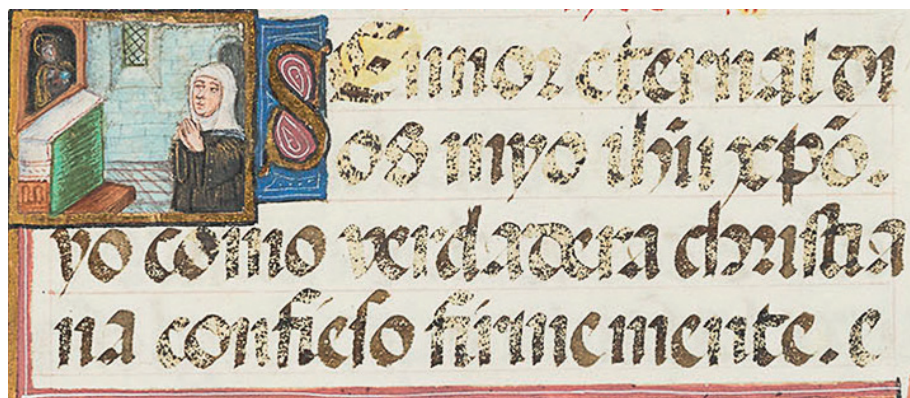 SEnnor eternal di
os myo ihũ xpõ.
yo como verdadera christia
na confieso firmemente. e